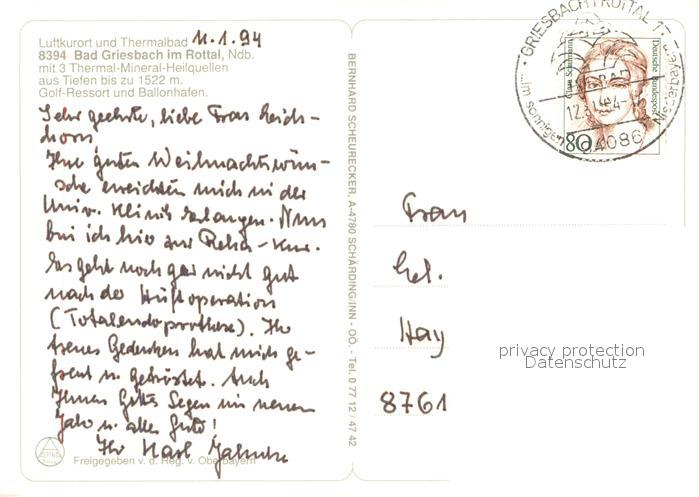 Luftkurort und Thermalbad 11.1.94
8394 Bad Griesbach im Rottal, Ndb.
mit 3 Thermal-Mineral-Heilquellen
aus Tiefen bis zu 1522 m.
Golf-Ressort und Ballonhafen.
Sehr geehrte, liebe Frau Reich-
horn,
Ihre guten Weihnachtswün-
sche erreichten mich in der
Univ. Klinik Erlangen. Nun
bin ich hier zur Reha-Kur.
Es geht noch gar nicht gut
nach der Hüftoperation
(Totalendoprothese). Ihr
treues Gedenken hat mich ge-
freut u. getröstet. Auch
Ihnen Gottes Segen im neuen
Jahr u. alles Gute!
Ihr Karl
Freigegeben v. d. Reg. v. Oberbayern
BERNHARD SCHEURECKER, A-4780 SCHÄRDING/INN - OÖ. - Tel. 0 77 12 / 47 42
GRIESBACH I ROTTAL 1
Clara Schumann
Deutsche Bundespost
80
94086
Frau
Hay
8761
privacy protection
Datenschutz